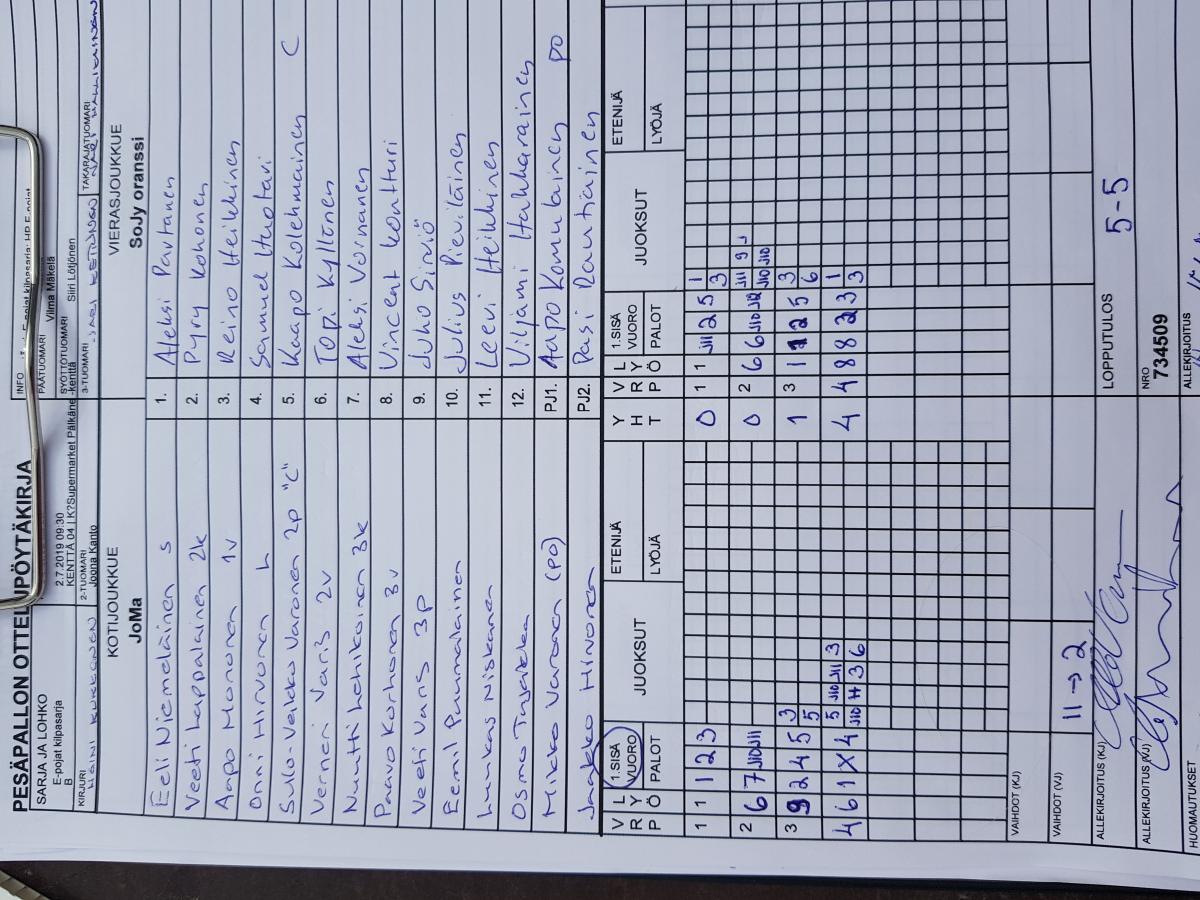 PESÄPALLON OTTELUPÖYTÄKIRJA
SARJA JA LOHKO
E-pojat kilpasarja
B
2.7.2019 09:30
KENTTÄ 04 | K?Supermarket Pälkäne -kenttä
INFO
E-pojat kilpasarja: HP E-pojat
PÄÄTUOMARI Vilma Mäkelä
SYÖTTÖTUOMARI Siiri Lötjönen
KIRJURI
2-TUOMARI
Joona Kanto
3-TUOMARI
TAKARAJATUOMARI
KOTIJOUKKUE
JoMa
VIERASJOUKKUE
SoJy oranssi
Eeli Niemeläinen s
1. Aleksi Partanen
Veeti Lappalainen 2k
2. Pyry Kononen
Aapo Manonen 1v
3. Reino Heikkinen
Onni Hirvonen L
4. Samuel Huotari
Sulo-Veikko Varonen 2p "C"
5. Kaapo Kolehmainen C
Verneri Varis 2v
6. Topi Kyllönen
Nuutti Lehikoinen 3k
7. Aleksi Vornanen
Paavo Korhonen 3v
8. Vincent Kontturi
Veeti Varis 3p
9. Juho Sirviö
Eemil Paumalainen
10. Julius Pieviläinen
Luukas Niskanen
11. Leevi Heikkinen
12. Viljami Hakkarainen
Mikko Varonen (po)
PJ1. Aapo Komulainen po
Jaakko Hirvonen
PJ2. Pasi Rautiainen
V R P
L Y Ö
1.SISÄ VUORO
PALOT
JUOKSUT
ETENIJÄ
LYÖJÄ
Y H T
V R P
L Y Ö
1.SISÄ VUORO
PALOT
JUOKSUT
ETENIJÄ
LYÖJÄ
1 1 1 2 3
0 1 1 J11 2 5 1 3
2 6 7 J10 J11
0 2 6 6 J10 J12 J11 9 J J10 J10
3 9 2 4 5 3 5
1 3 1 1 2 5 3 6
4 6 1 X 4 5 J10 J11 3 J10 H 3 6
4 4 8 8 2 3 1 3
VAIHDOT (KJ)
VAIHDOT (VJ)
11 → 2
ALLEKIRJOITUS (KJ)
LOPPUTULOS
5-5
ALLEKIRJOITUS (VJ)
NRO
734509
HUOMAUTUKSET
ALLEKIRJOITUS